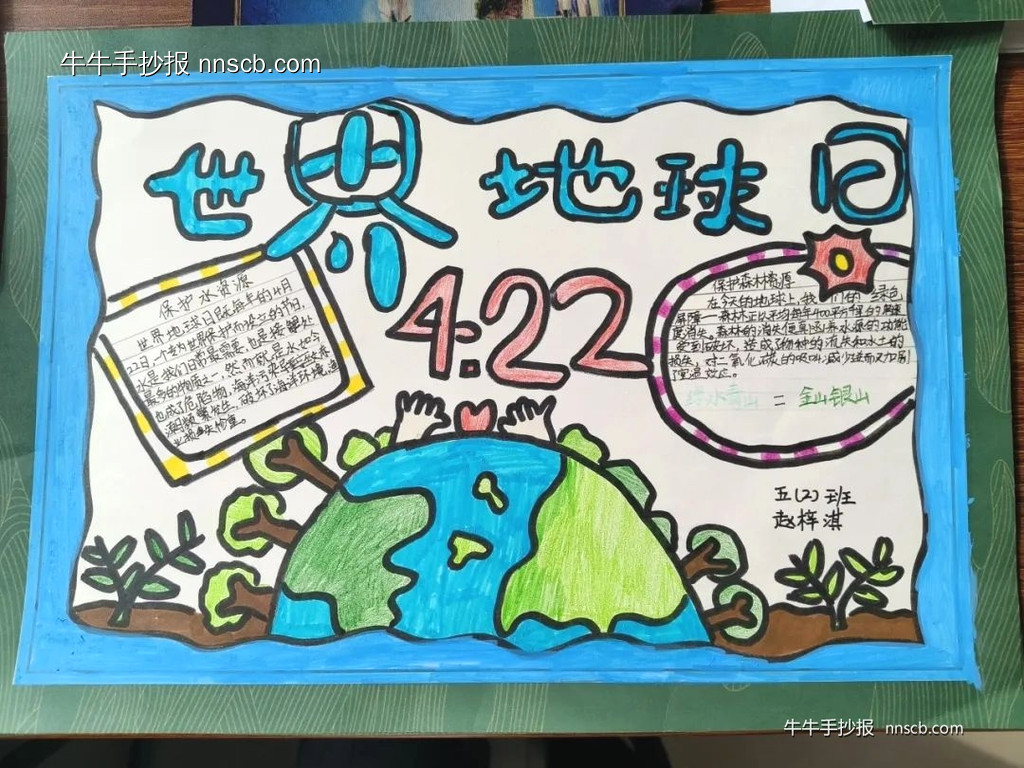 牛牛手抄报 nnscb.com
世界地球日
4.22
保护水资源
世界地球日既每年的4月
22日,个专为世界保护而设立的节日,
水是我们日常最需要,也是接触处
最多的物质之一。然而现在水如今
也成了危脂物,海来污染
频繁发生,破坏了海洋环境,造
保护森林资源
在今天的地球上,我们的绿色
屏障一森林正以平均每年400平方千
度消失。森林的消失使其涵养水源的功能
受到破坏,造成了物种的流失和水土的
损失,对二氧化碳的吸收减少继而又加剧
了温室效应。
绿水青山 = 金山银山
五(2)班
赵梓淇
牛牛手抄报 nnscb.com